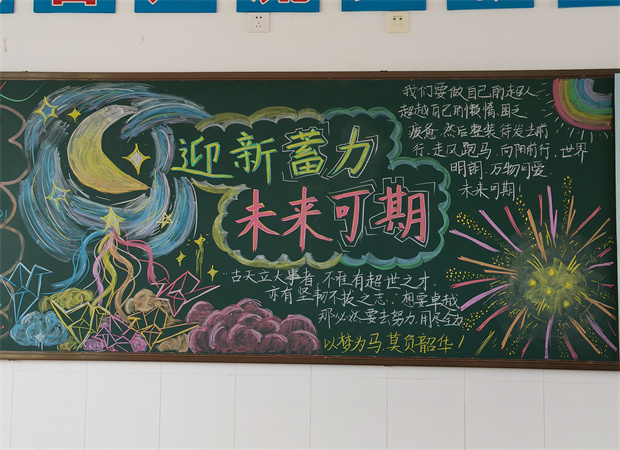 迎新蓄力
未来可期
我们要做自己的超人
超越自己的懒惰,困乏
疲惫,然后整装待发去前
行,走风跑马,向阳前行,世界
明朗,万物可爱,
未来可期!
古天立大事者,不唯有超世之才,
亦有坚韧不拔之志,想要卓越
那必然要去努力,用尽全力
以梦为马,莫负韶华!